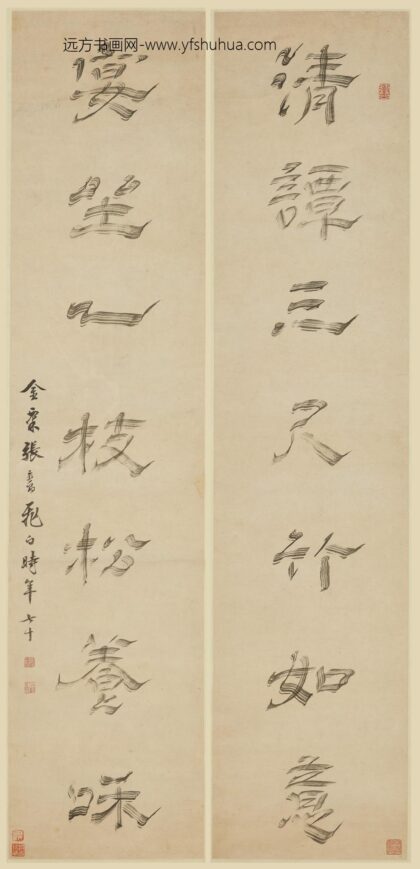 远方书画网-www.yfshuhua.com
清譚三尺竹如意
宴坐一枝松養和
金粟張燕昌飛白時年七十